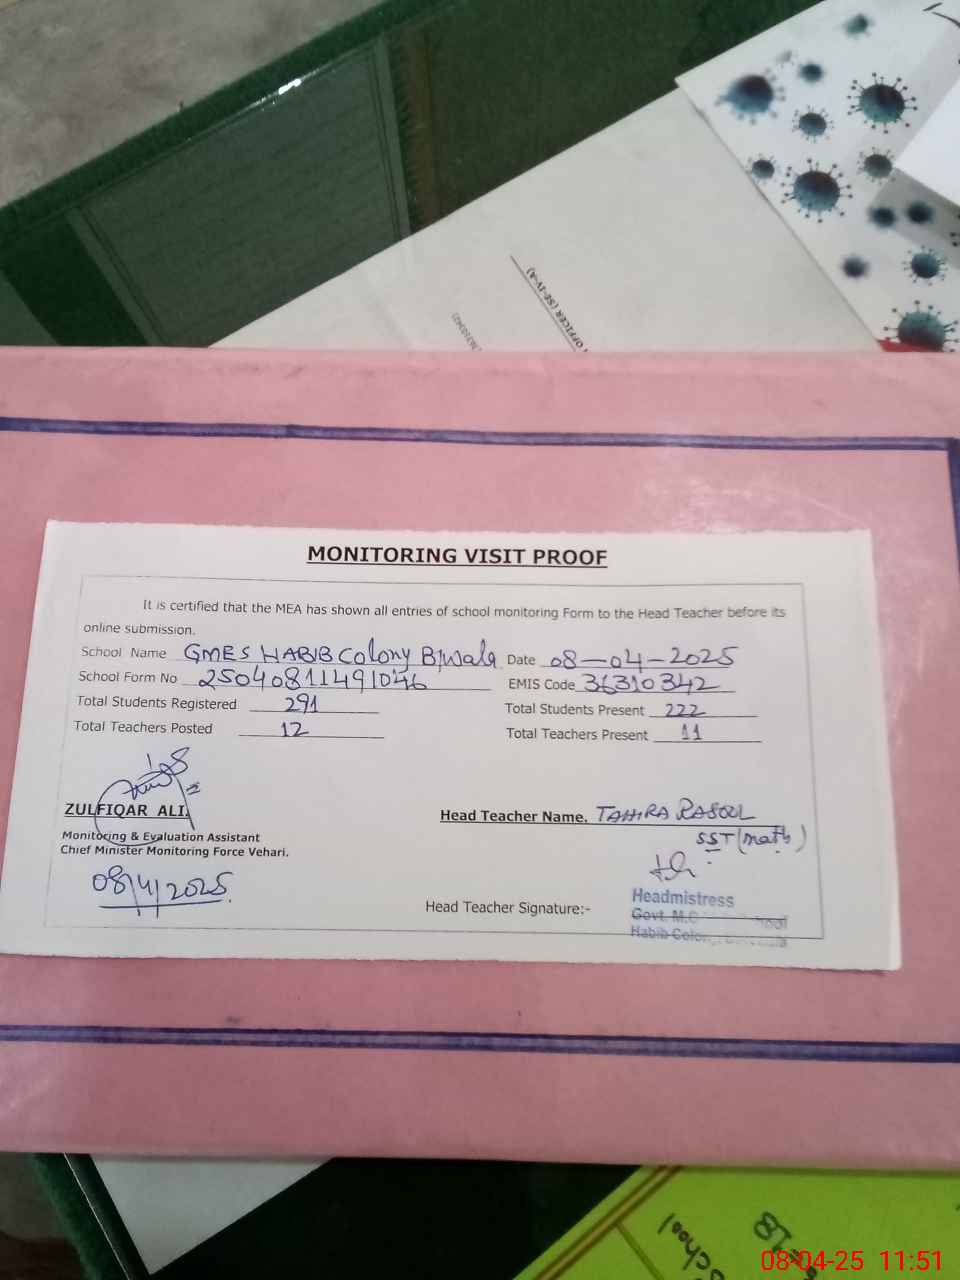 OFFICER (SE-IV-A)
MONITORING VISIT PROOF
It is certified that the MEA has shown all entries of school monitoring Form to the Head Teacher before its
online submission.
School Name GMES HABIB Colony B/wala Date 08-04-2025
School Form No EMIS Code 36310342
Total Students Registered 291 Total Students Present 222
Total Teachers Posted 12 Total Teachers Present 11
ZULFIQAR ALI
Monitoring & Evaluation Assistant
Chief Minister Monitoring Force Vehari.
08/4/2025
Head Teacher Name. TAHIRA RASOOL
SST (math)
Head Teacher Signature:-
Headmistress
Govt. M.C
Habib Colony
School
08-04-25 11:51